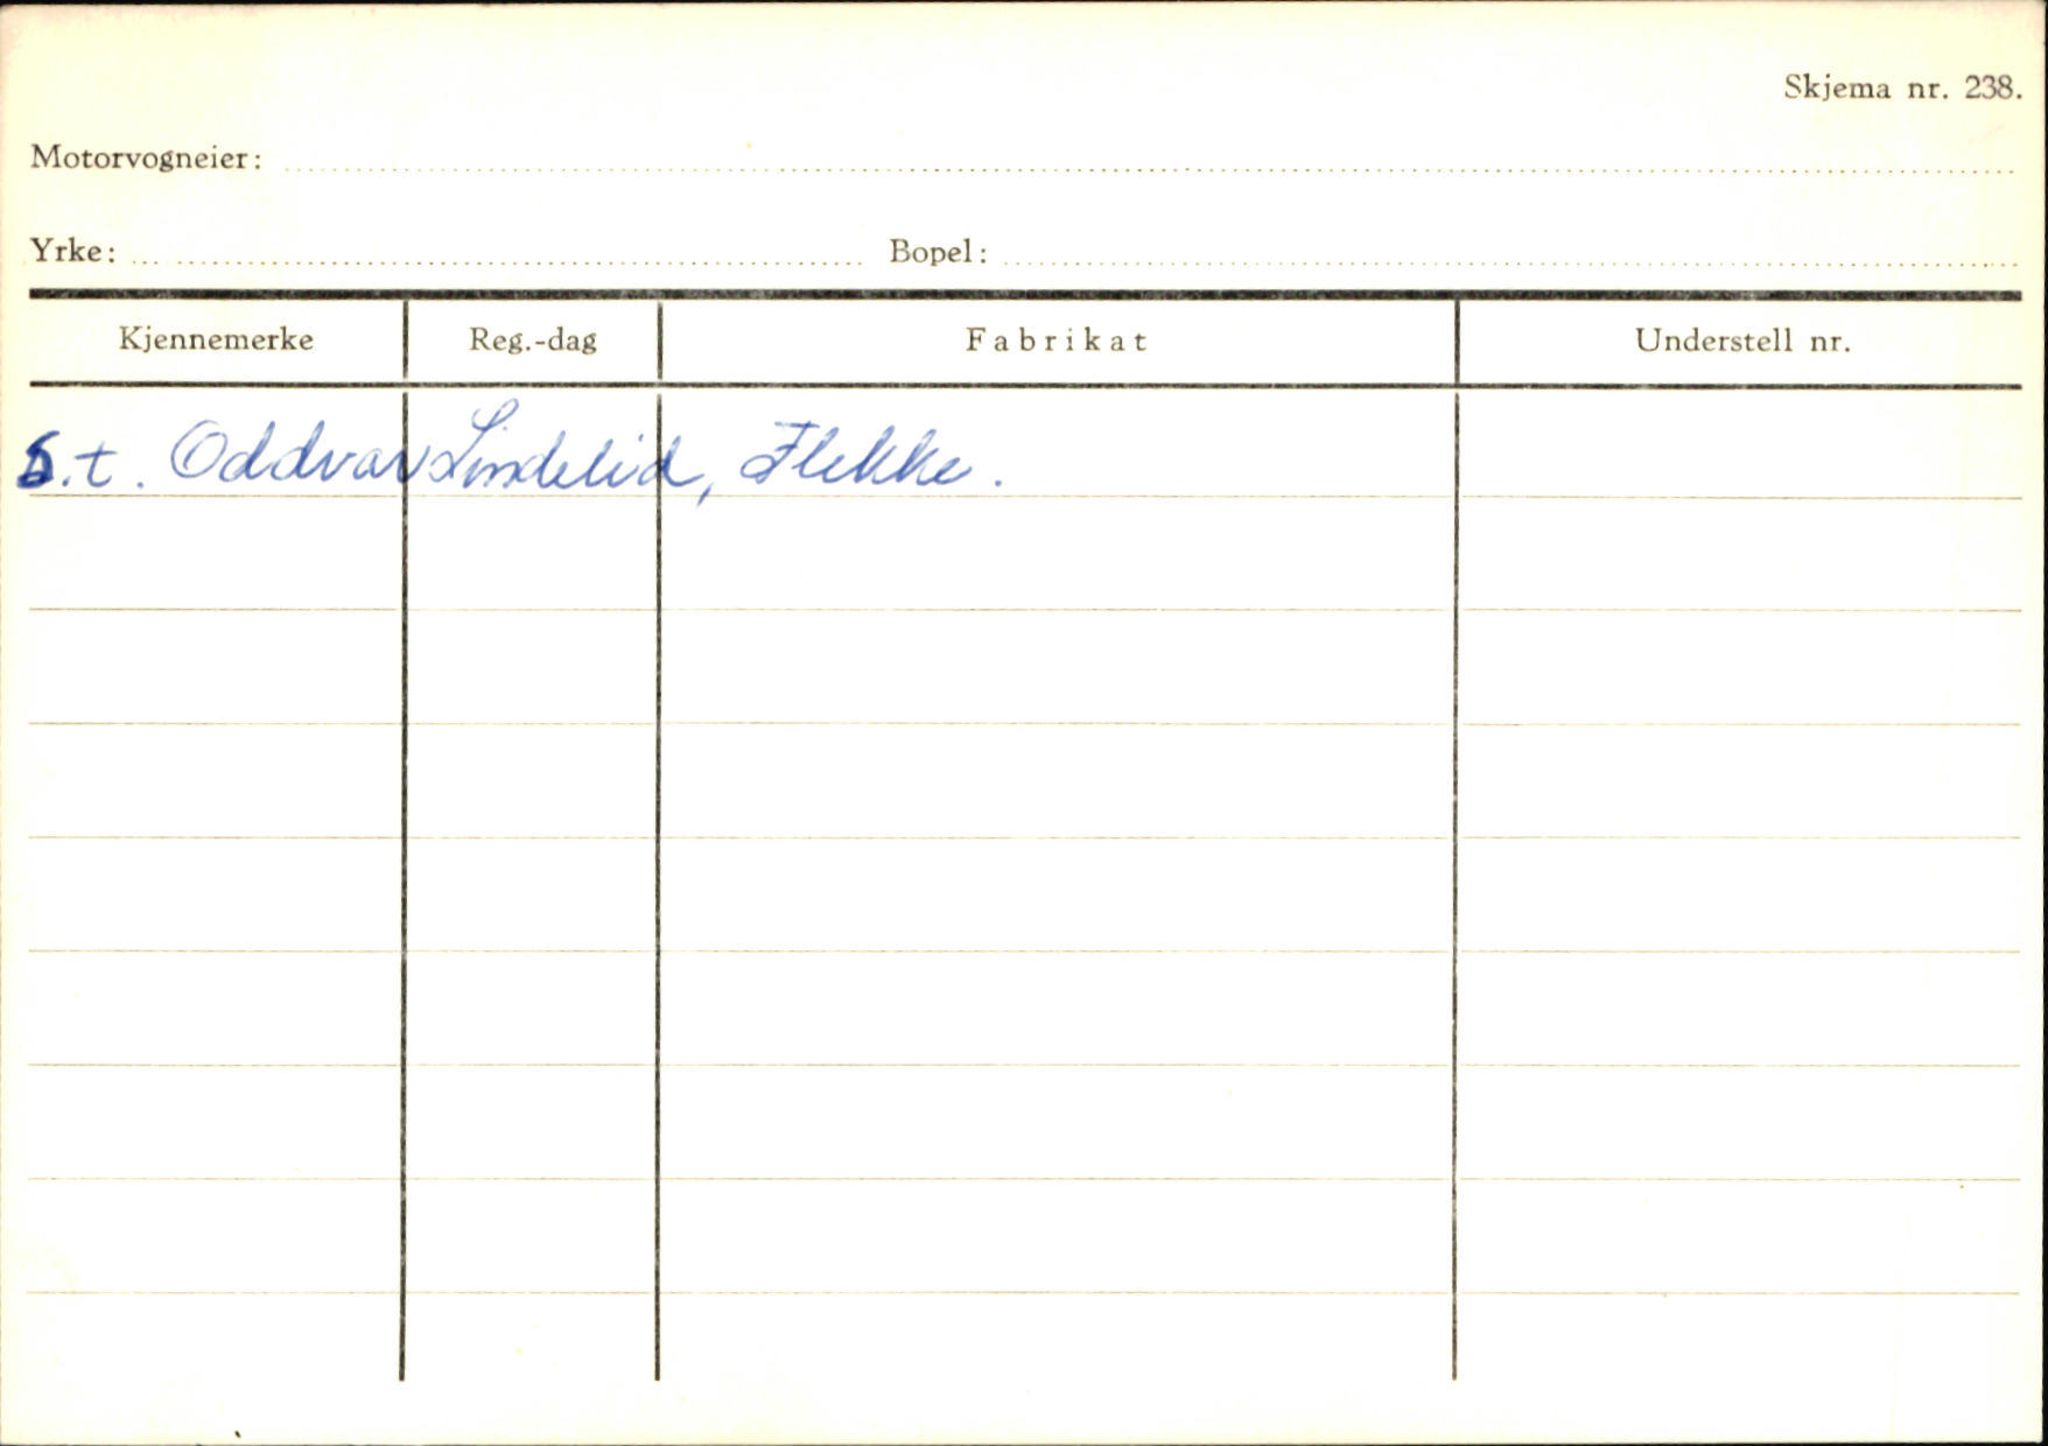 Skjema nr. 238.
Motorvogneier:
Yrke: Bopel:
Kjennemerke Reg.-dag Fabrikat Understell nr.
S.t. Oddvar Lindelid, Flekke.